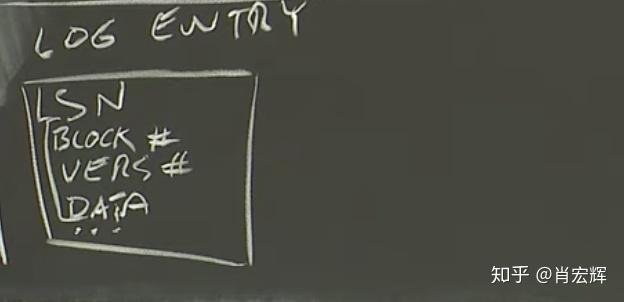 LOG ENTRY
LSN
BLOCK #
VERS #
DATA
...
知乎 @肖宏辉